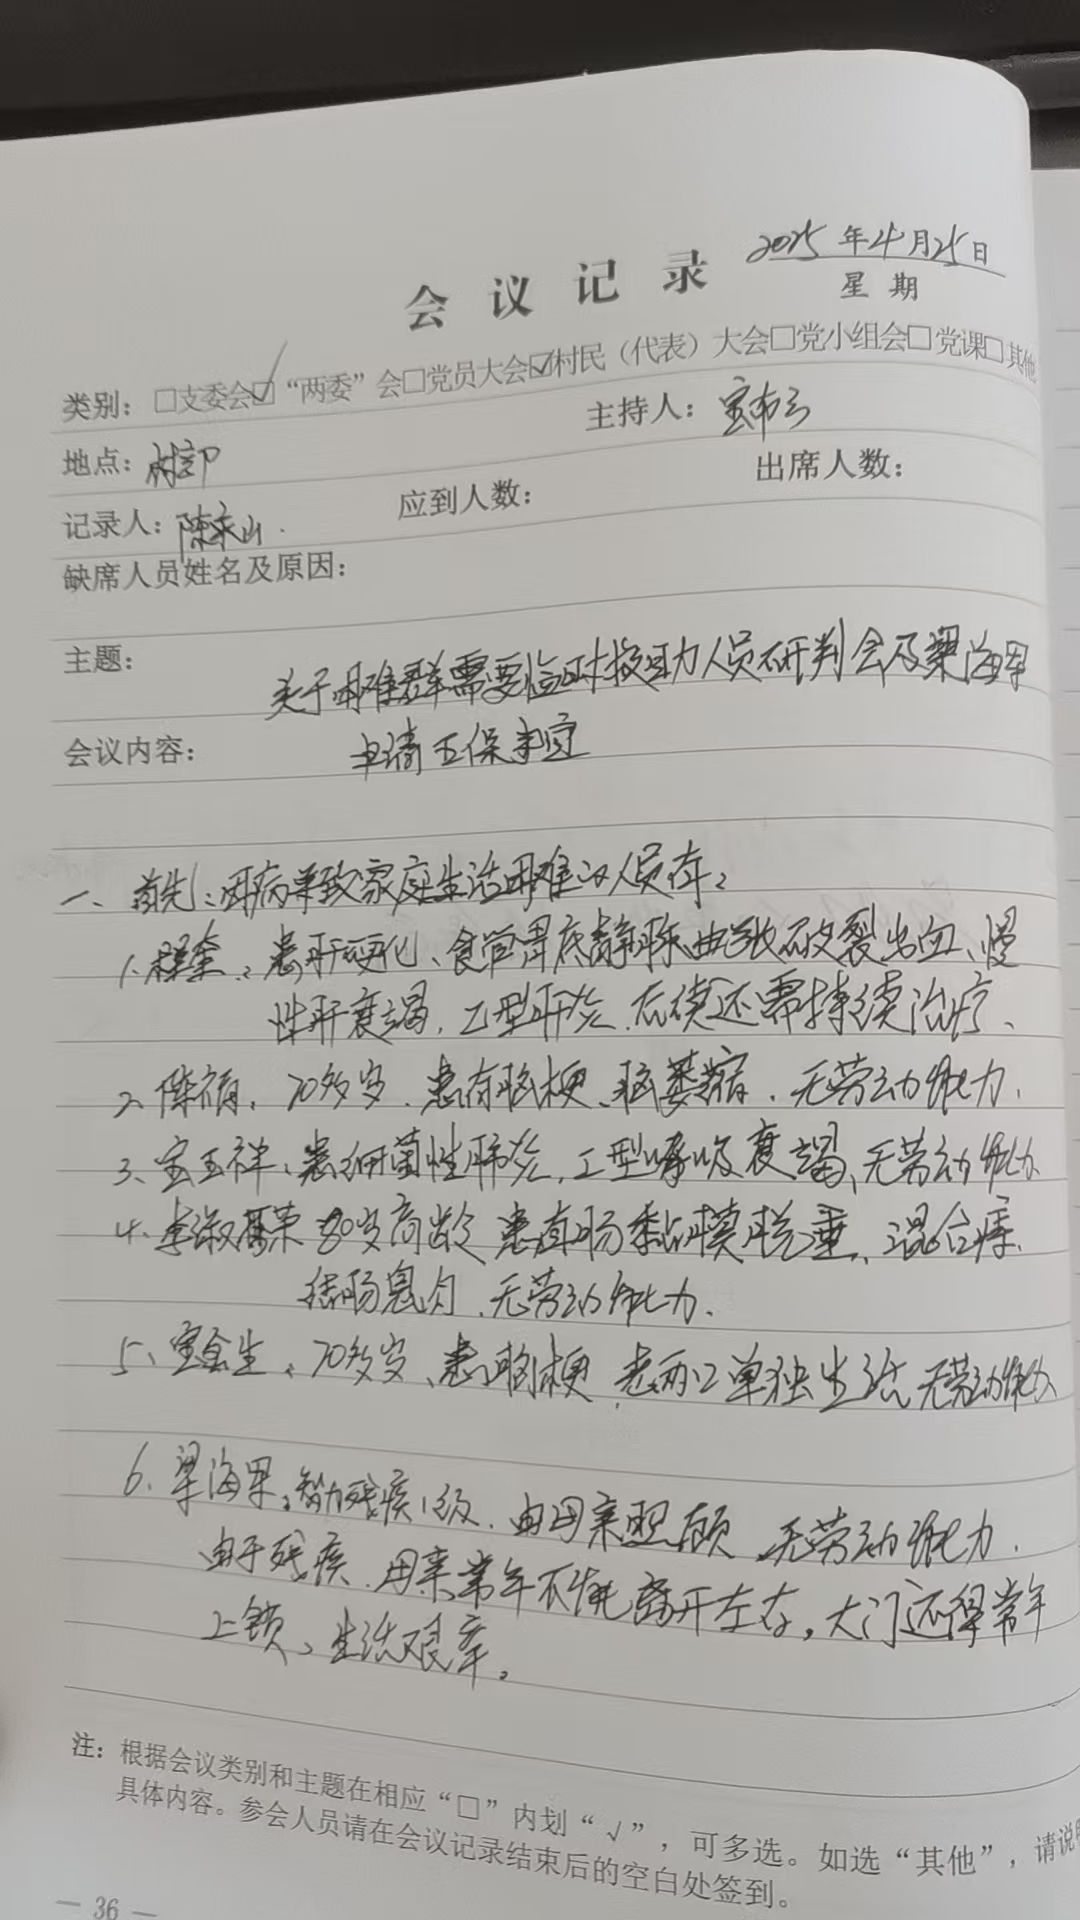 2025年4月25日
会议记录 星期
类别：□支委会☑“两委”会□党员大会☑村民（代表）大会□党小组会□党课□其他
地点：村部 主持人：宝布
记录人：陈永山 应到人数： 出席人数：
缺席人员姓名及原因：
主题：
关于困难群需要临时救助人员研判会及梁海军
会议内容： 申请五保事宜
一、首先：因病导致家庭生活困难的人员有：
1、患肝硬化、食管胃底静脉曲张破裂出血、慢
性肝衰竭，乙型肝炎，后续还需持续治疗、
2、陈福，70多岁，患有脑梗、脑萎缩，无劳动能力，
3、宝玉祥、患细菌性肺炎，I型呼吸衰竭、无劳动能力
4、李淑荣 80岁高龄 患直肠黏膜脱垂、混合痔、
结肠息肉，无劳动能力、
5、宝金生、70多岁、患脑梗，老两口单独生活 无劳动能力
6、梁海军：智力残疾1级，由母亲照顾，无劳动能力，
由于残疾，母亲常年不能离开左右，大门还得常年
上锁、生活艰辛。
注：根据会议类别和主题在相应“□”内划“√”，可多选。如选“其他”，请说
具体内容。参会人员请在会议记录结束后的空白处签到。
— 36 —